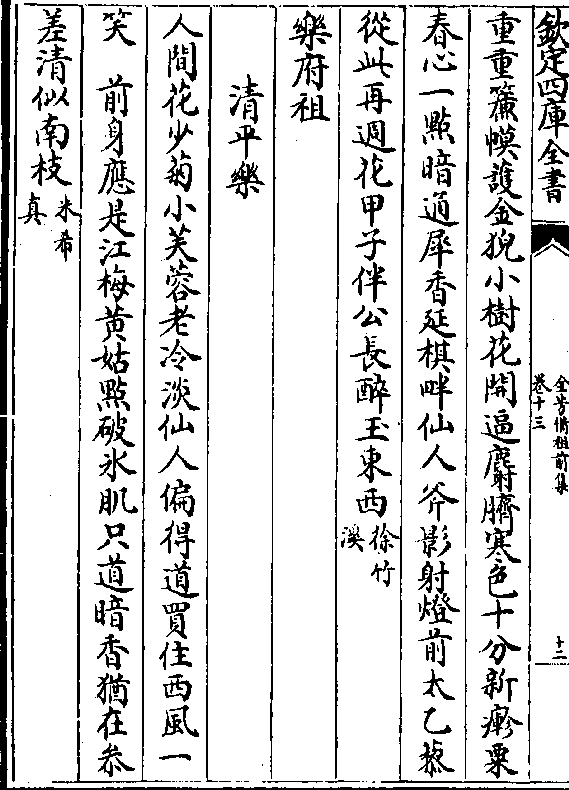 欽定四庫全書
全芳備祖前集
卷十三
十二
重重簾幙護金猊小樹花開逼麝臍寒色十分新疹粟
春心一點暗通犀香延棋畔仙人斧影射燈前太乙藜
從此再週花甲子伴公長醉玉東西徐竹溪
樂府祖
清平樂
人間花少菊小芙蓉老冷淡仙人偏得道買住西風一
笑　前身應是江梅黃姑點破氷肌只道暗香猶在叅
差清似南枝米希真